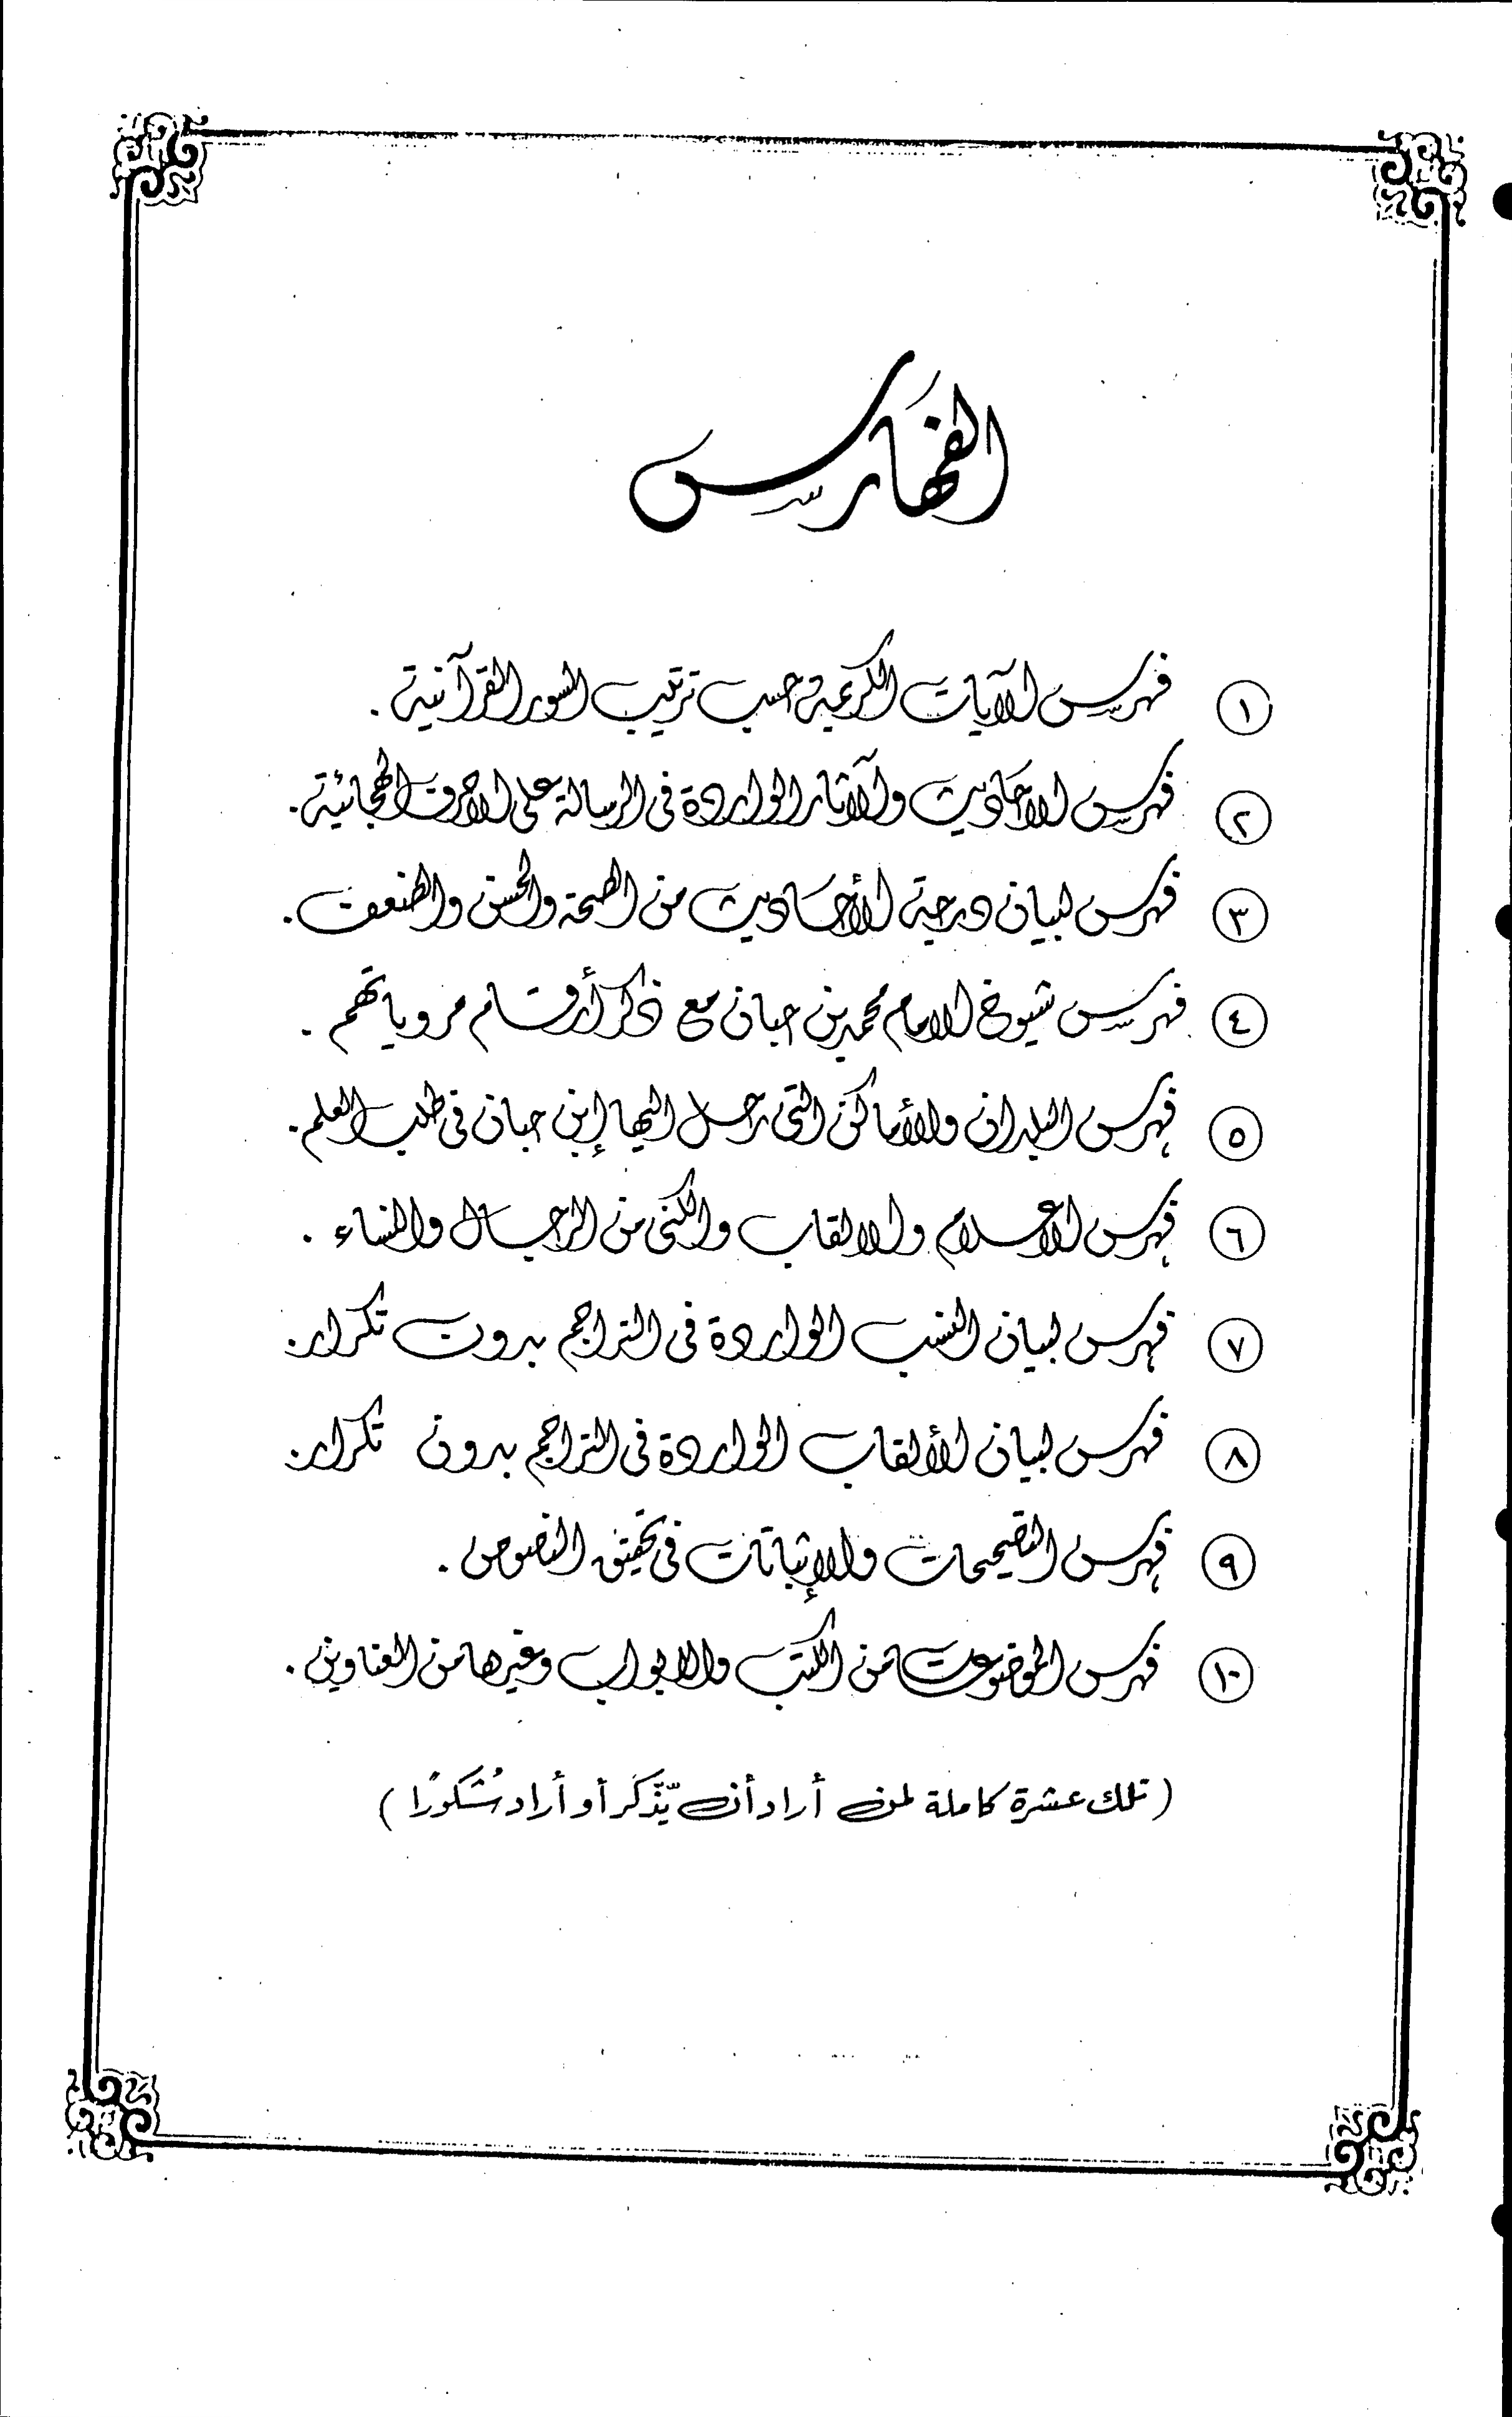 الفهارس
١ فهرس الآيات الكريمة حسب ترتيب السور القرآنية .
٢ فهرس الاحاديث والآثار الواردة فى الرسالة على الاحرف الهجائية .
٣ فهرس لبيان درجة الأحاديث من الصحة والحسن والضعف .
٤ فهرس شيوخ الامام محمد بن حبان مع ذكر أرقام مروياتهم .
٥ فهرس البلدان والأماكن التى رحل اليها إبن حبان فى طلب العلم .
٦ فهرس الاعلام والالقاب والكنى من الرجال والنساء .
٧ فهرس لبيان النسب الواردة فى التراجم بدون تكرار .
٨ فهرس لبيان الألقاب الواردة فى التراجم بدون تكرار .
٩ فهرس التصحيحات والإثباتات فى تحقيق النصوص .
١٠ فهرس الموضوعات من الكتب والابواب وغيرها من العناوين .
(تلك عشرة كاملة لمن أراد أن يّذّكر أو أراد شُكورًا)